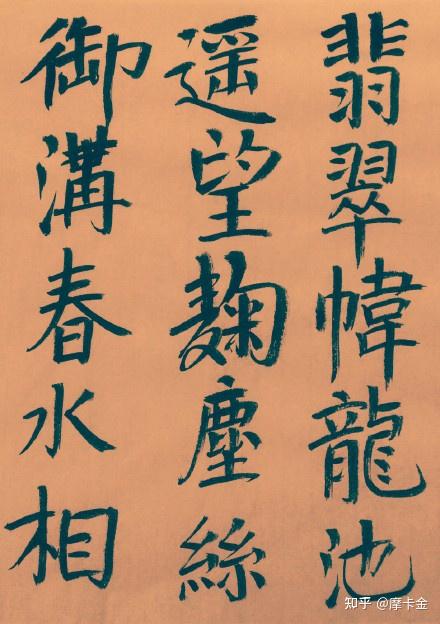 翡翠幃龍池
遥望麴塵絲
御溝春水相
知乎 @摩卡金